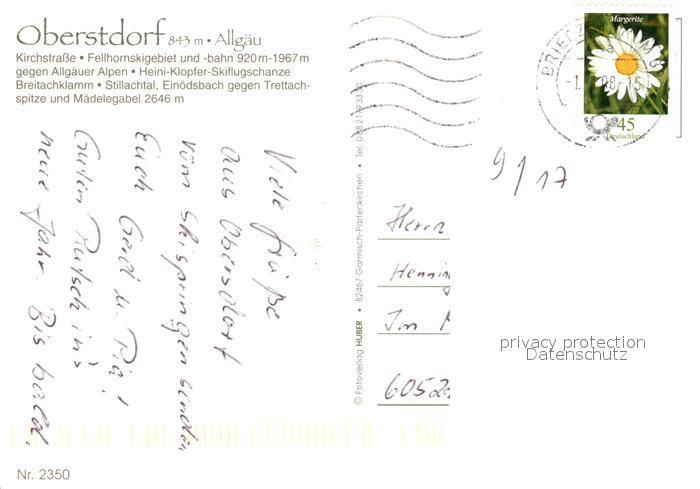 Oberstdorf 843 m • Allgäu
Kirchstraße • Fellhornskigebiet und -bahn 920 m-1967 m
gegen Allgäuer Alpen • Heini-Klopfer-Skiflugschanze
Breitachklamm • Stillachtal, Einödsbach gegen Trettach-
spitze und Mädelegabel 2646 m
Viele Grüße
aus Oberstdorf
vom Skispringen senden
Euch Gerd u. Pia!
Guten Rutsch in's
neue Jahr. Bis bald.
Nr. 2350
© Fotoverlag HUBER • 82467 Garmisch-Partenkirchen • Tel.
Margerite
45
Deutschland
BRIEFZ
9/17
Herrn
Henning
Im
6052
privacy protection
Datenschutz